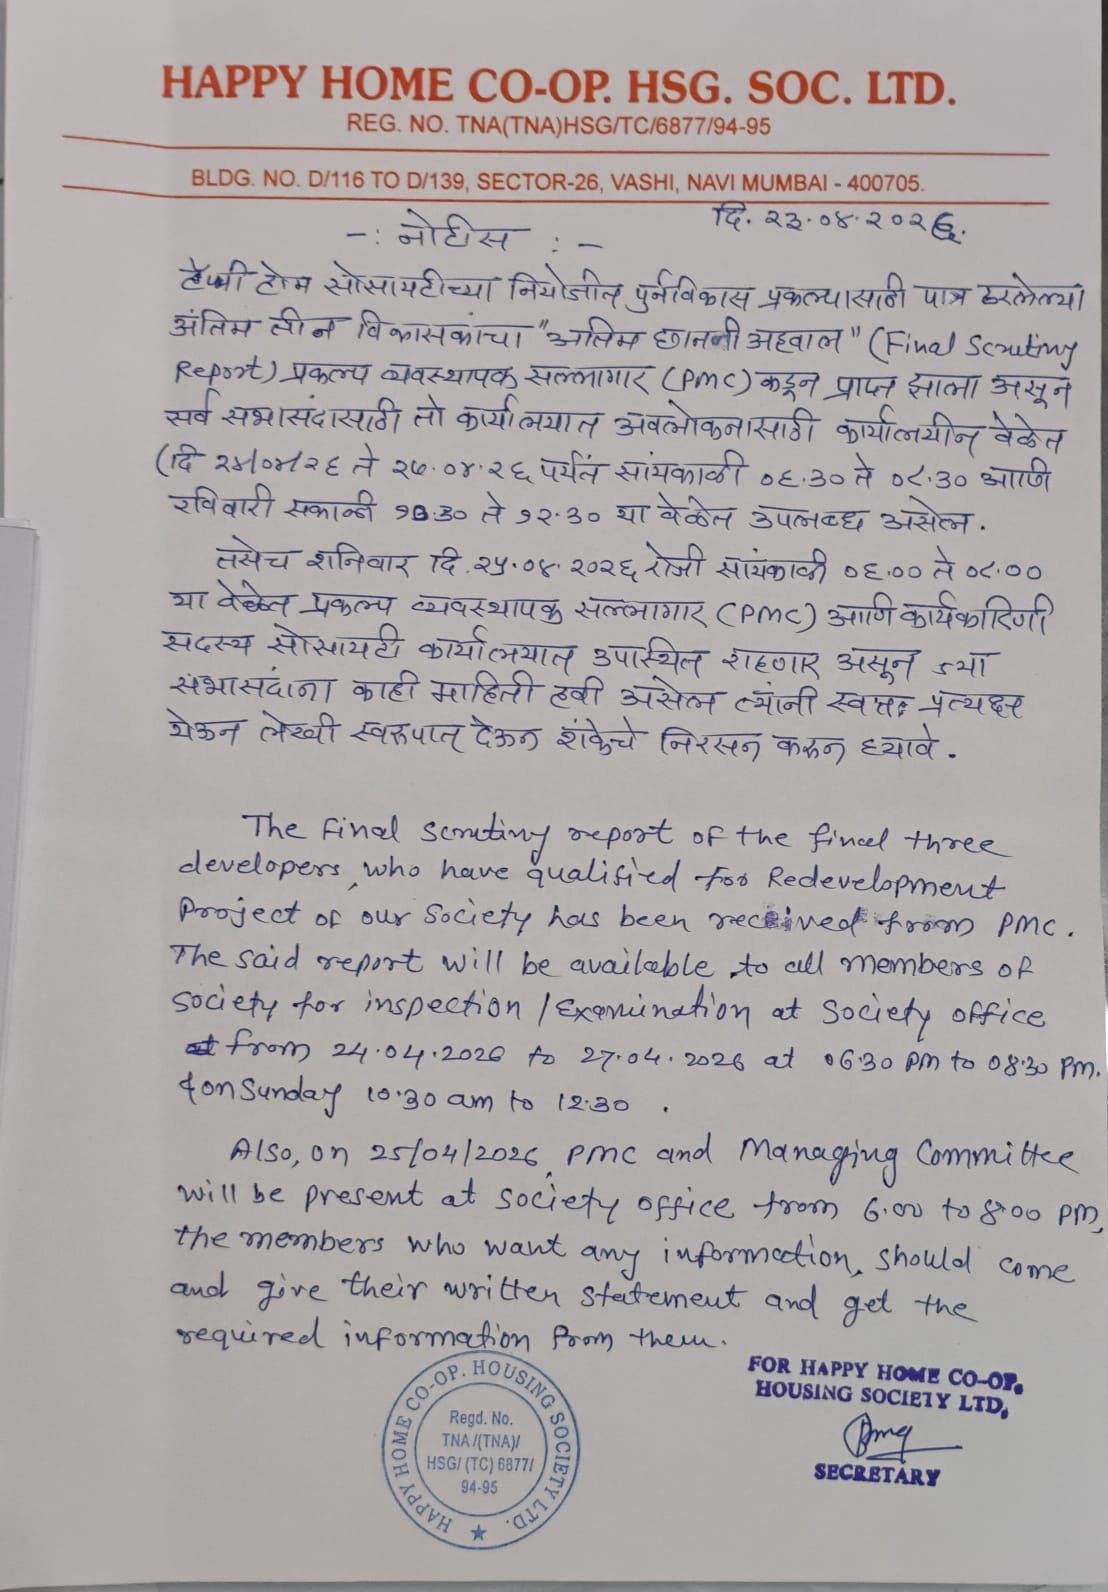 HAPPY HOME CO-OP. HSG. SOC. LTD.
REG. NO. TNA(TNA)HSG/TC/6877/94-95
BLDG. NO. D/116 TO D/139, SECTOR-26, VASHI, NAVI MUMBAI - 400705.
दि. २३.०४.२०२६.
-: नोटीस :-
हॅप्पी होम सोसायटीच्या नियोजीत पुर्नविकास प्रकल्पासाठी पात्र ठरलेल्या
अंतिम तीन विकासकांचा "अंतिम छाननी अहवाल" (Final Scrutiny
Report) प्रकल्प व्यवस्थापक सल्लागार (PMC) कडून प्राप्त झाला असून
सर्व सभासंदासाठी तो कार्यालयात अवलोकनासाठी कार्यालयीन वेळेत
(दि २४/०४/२६ ते २७.०४.२६ पर्यंत सांयकाळी ०६.३० ते ०८.३० आणि
रविवारी सकाळी १०.३० ते १२.३० या वेळेत उपलब्ध असेल.
तसेच शनिवार दि.२५.०४.२०२६ रोजी सांयकाळी ०६.०० ते ०८.००
या वेळेत प्रकल्प व्यवस्थापक सल्लागार (PMC) आणि कार्यकारिणी
सदस्य सोसायटी कार्यालयात उपास्थित राहणार असून ज्या
सभासदांना काही माहिती हवी असेल त्यांनी स्वतः प्रत्यक्ष
येऊन लेखी स्वरूपात देऊन शंकेचे निरसन करून घ्यावे.
The Final Scrutiny report of the final three
developers, who have qualified for Redevelopment
Project of our Society has been received from PMC.
The said report will be available to all members of
Society for inspection / Examination at Society office
from 24.04.2026 to 27.04.2026 at 06:30 PM to 08:30 PM.
& on Sunday 10.30 am to 12:30 .
Also, on 25/04/2026, PMC and Managing Committee
will be present at society office from 6.00 to 8.00 PM,
the members who want any information, should come
and give their written statement and get the
required information from them.
FOR HAPPY HOME CO-OP.
HOUSING SOCIETY LTD.
SECRETARY
HAPPY HOME CO-OP. HOUSING SOCIETY LTD.
Regd. No.
TNA/(TNA)/
HSG/ (TC) 6877/
94-95